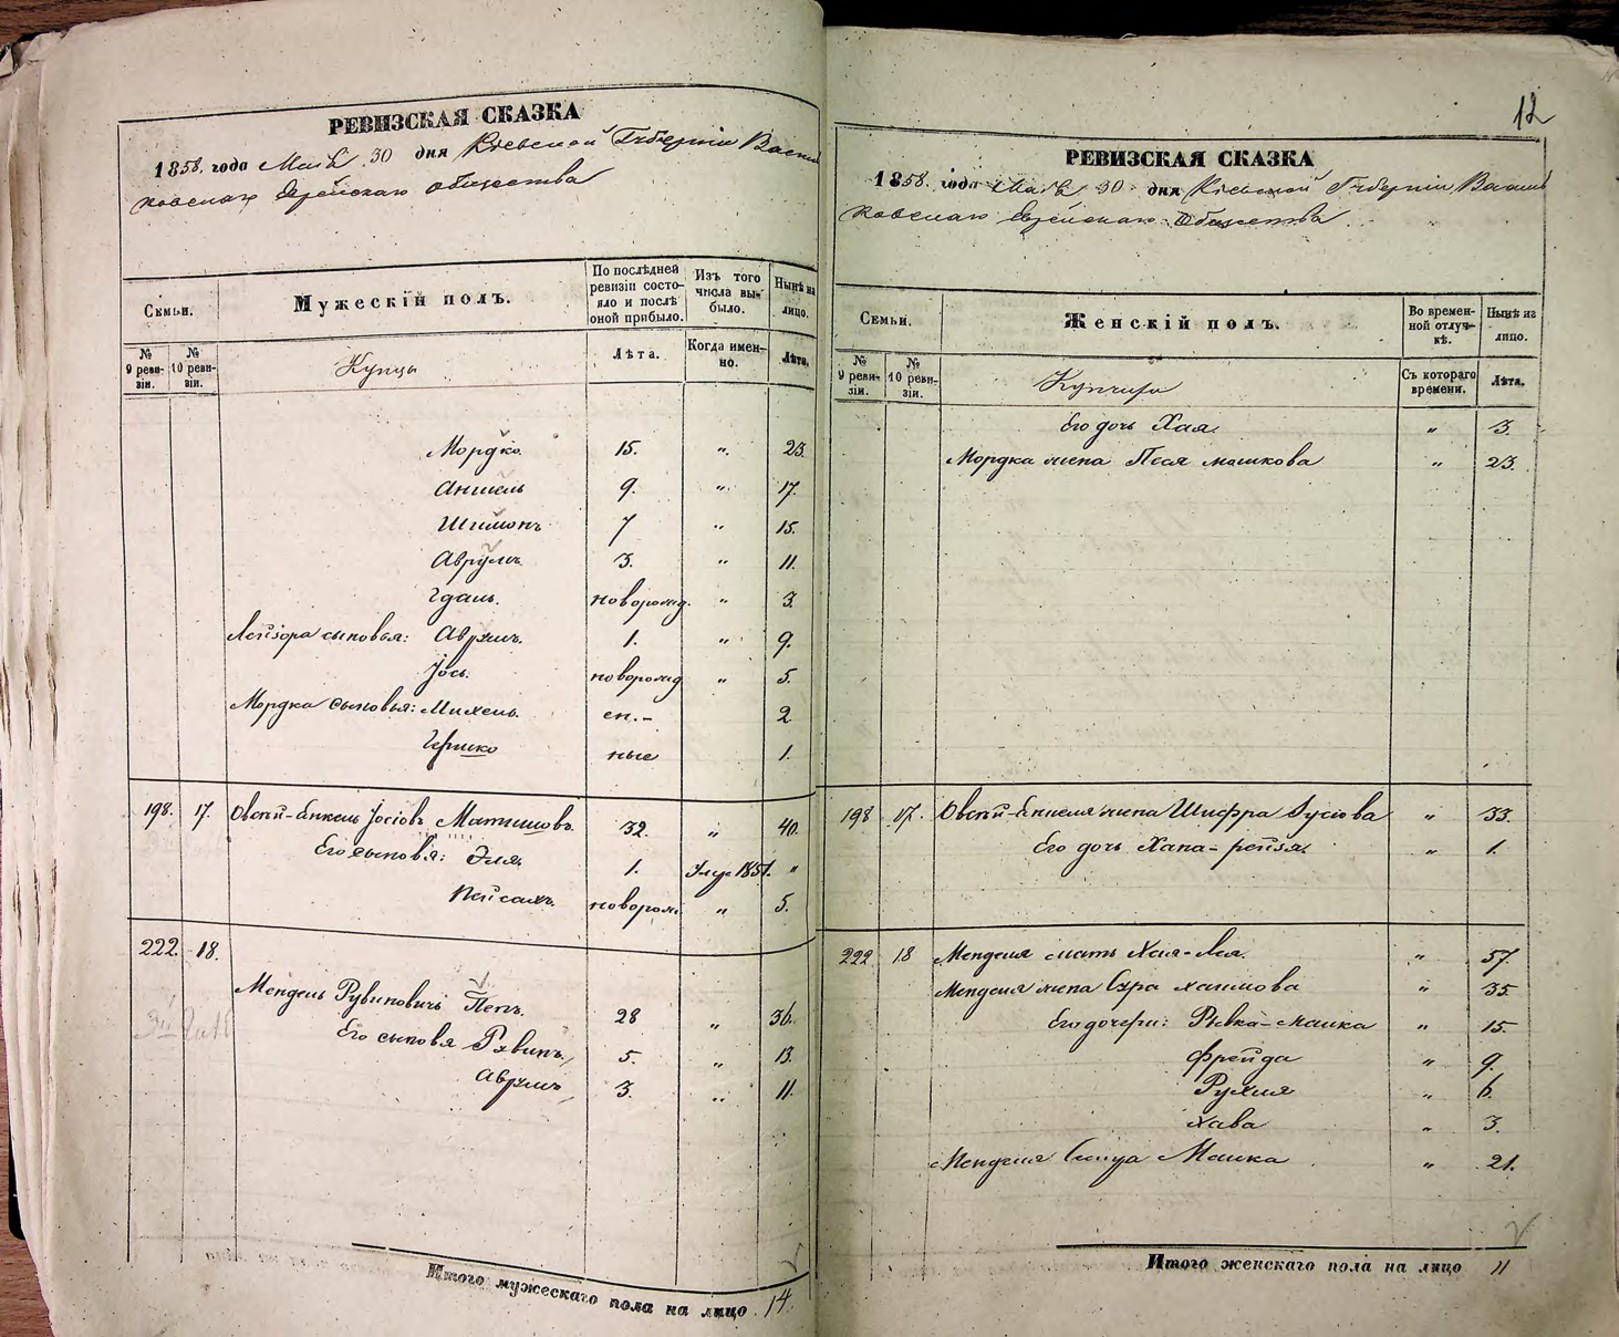 РЕВИЗСКАЯ СКАЗКА
1858. года Маія 30 дня Кіевской Губерніи Васиь
ковскаго Еврейскаго общества
Семьи. Мужескій полъ. По послѣдней ревизіи состояло и послѣ оной прибыло. Изъ того числа выбыло. Нынѣ на лицо.
№ 9 ревизіи. № 10 ревизіи. Купцы Лѣта. Когда именно. Лѣта.
Мордко 15. „ 23.
Аншель 9. „ 17.
Шимонъ 7 „ 15.
Аврумъ 3. „ 11.
новорожд. „ 3.
Лейзора сыновья: Аврумъ. 1. „ 9.
Іось. новорожд „ 5.
Мордка сыновья: Михель. 2
Гершко ные 1.
198. 17. Овсій-Янкель Іосіовъ Матишовъ. 32. „ 40.
Его сыновья: Эля. 1. Умер 1851. „
Пейсахъ. новорож. „ 5.
222. 18.
Мендель Рувиновичъ Пепъ. 28 „ 36.
Его сыновя Рувинъ, 5. „ 13.
Аврумъ 3. „ 11.
Итого мужескаго пола на лицо. 14.
12
РЕВИЗСКАЯ СКАЗКА
1858. года Маія 30 дня Кіевской Губерніи Василь
ковскаго Еврейскаго Общества
Семьи. Женскій полъ. Во временной отлучкѣ. Нынѣ на лицо.
№ 9 ревизіи. № 10 ревизіи. Съ котораго времени. Лѣта.
Его дочь Хая. „ 3.
Мордка жена Песя Мошкова „ 23.
198 17. Овсій-Янкеля жена Шифра Зусіова „ 33.
Его дочь Хана-рейзя. „ 1.
222 18 Менделя мать Хая-Лея. „ 57.
Менделя жена Сура хаимова „ 35
Его дочери: Ривка-Малка „ 15.
Фрейда „ 9.
Рухля „ 6.
Хава „ 3.
Менделя Малка „ 21.
Итого женскаго пола на лицо 11